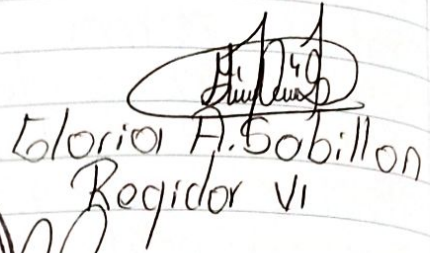 Gloria A. Sabillon
Regidor VI